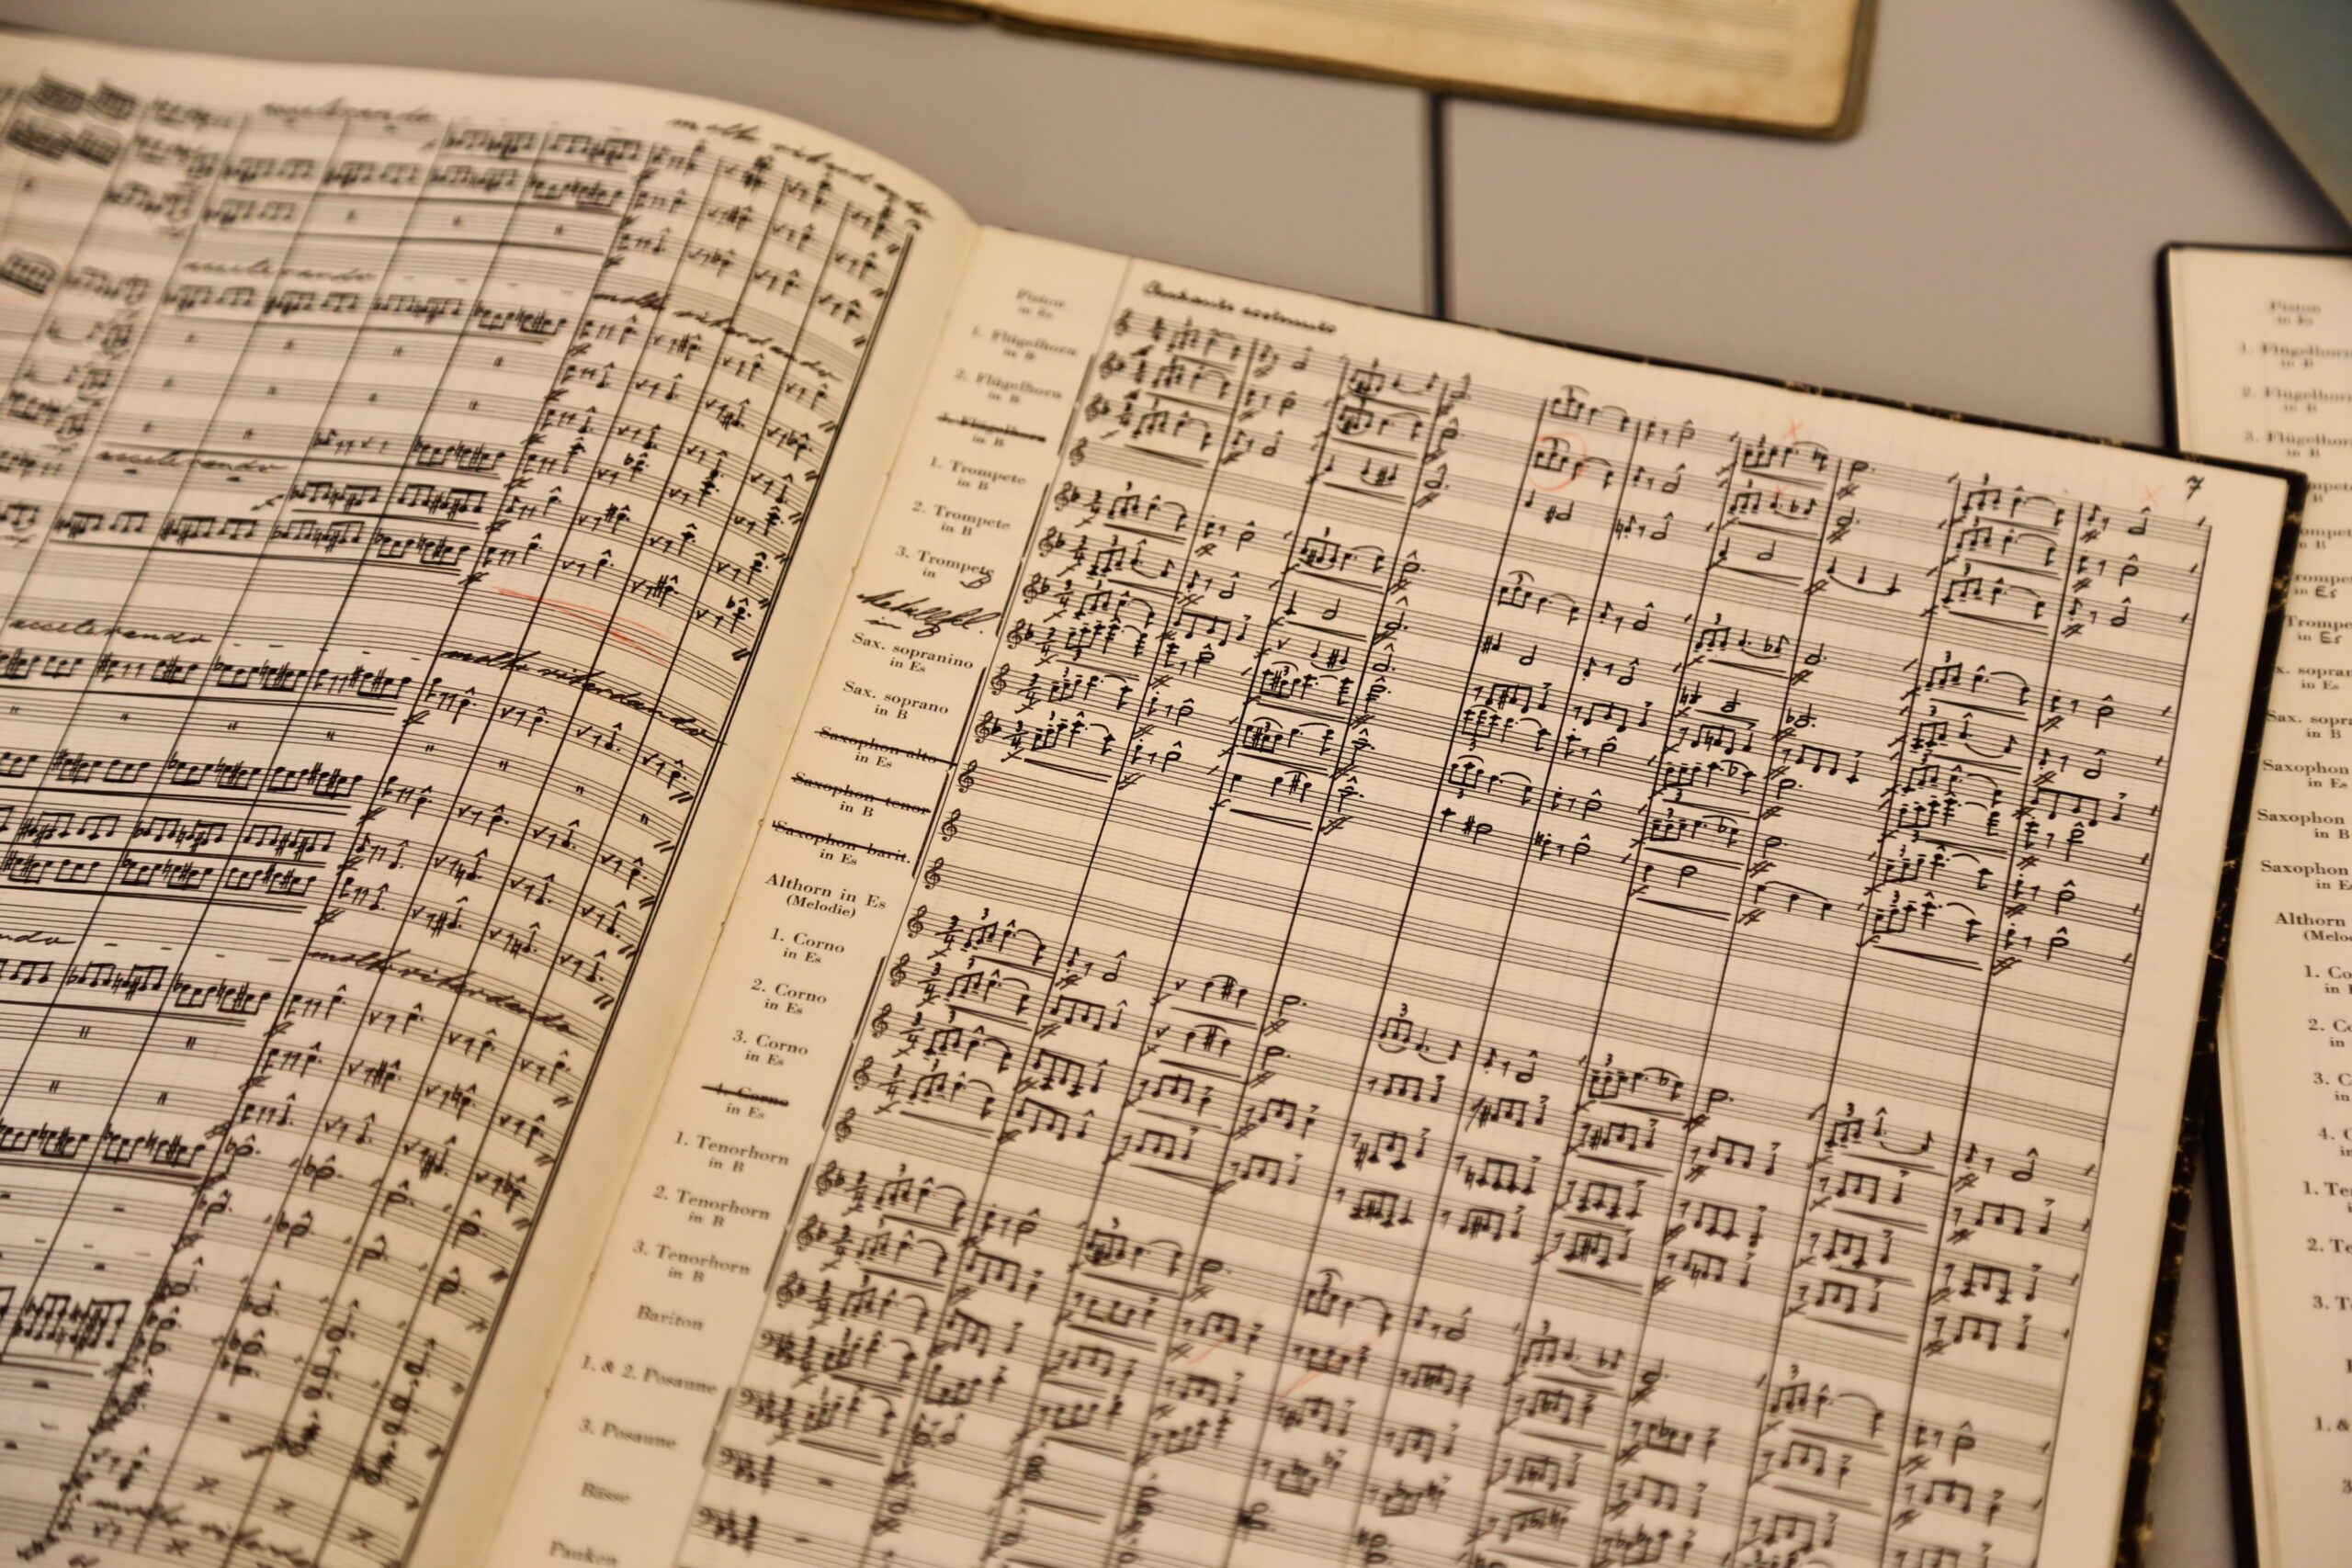 accelerando
molto ritardando
accelerando
molto ritardando
accelerando
accelerando
molto ritardando
molto ritardando
Piston
in Es
1. Flügelhorn
in B
2. Flügelhorn
in B
3. Flügelhorn
in B
1. Trompete
in B
2. Trompete
in B
3. Trompete
in B
in B
Sax. sopranino
in Es
Sax. soprano
in B
Saxophon alto
in Es
Saxophon tenor
in B
Saxophon barit.
in Es
Althorn in Es
(Melodie)
1. Corno
in Es
2. Corno
in Es
3. Corno
in Es
4. Corno
in Es
1. Tenorhorn
in B
2. Tenorhorn
in B
3. Tenorhorn
in B
Bariton
1. & 2. Posaune
3. Posaune
Bässe
Pauken
Andante sostenuto
7
Piston
in Es
1. Flügelhorn
in B
2. Flügelhorn
in B
3. Flügelhorn
in B
in B
in B
in Es
in Es
in Es
in B
Saxophon
in Es
Saxophon
in B
Saxophon
in Es
Althorn